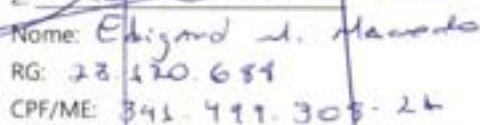 Nome: Edigard A. Macedo
RG: 28.120.688
CPF/ME: 341.499.308-26